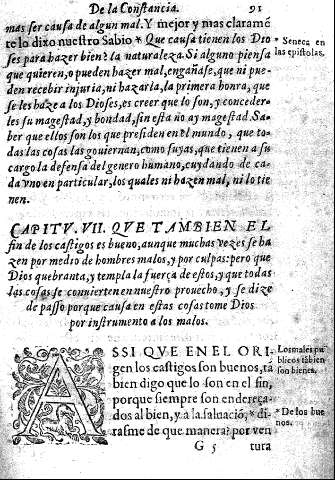 De la Constancia. 91
mas ser causa de algun mal. Y mejor y mas claramē
te lo dixo nuestro Sabio * Que causa tienen los Dio
ses para hazer bien? la naturaleza. Si alguno piensa
que quieren, o pueden hazer mal, engañase, que ni pue-
den recebir injuria, ni hazarla, la primera honra, que
se les haze a los Dioses, es creer que lo son, y conceder-
les su magestad, y bondad, sin esta no ay magestad. Sa-
ber que ellos son los que presiden en el mundo, que to-
das las cosas las gouiernan, como suyas, que tienen a su
cargo la defensa del genero humano, cuydando de ca-
da vno en particular, los quales ni hazen mal, ni lo tie
nen.
* Seneca en
las epistolas.
CAPITV. VII. QVE TAMBIEN EL
fin de los castigos es bueno, aunque muchas vezes se ha
zen por medio de hombres malos, y por culpas: pero que
Dios quebranta, y templa la fuerça de estos, y que todas
las cosas se conuierten en nuestro prouecho, y se dize
de passo porque causa en estas cosas tome Dios
por instrumento a los malos.
ASSI QVE EN EL ORI-
gen los castigos son buenos, tā
bien digo que lo son en el fin,
porque siempre son endereça-
dos al bien, y a la saluaciō, * di-
rasme de que manera? por ven
Los males pu
blicos tābien
son bienes.
* De los bue
nos.
G 5 tura